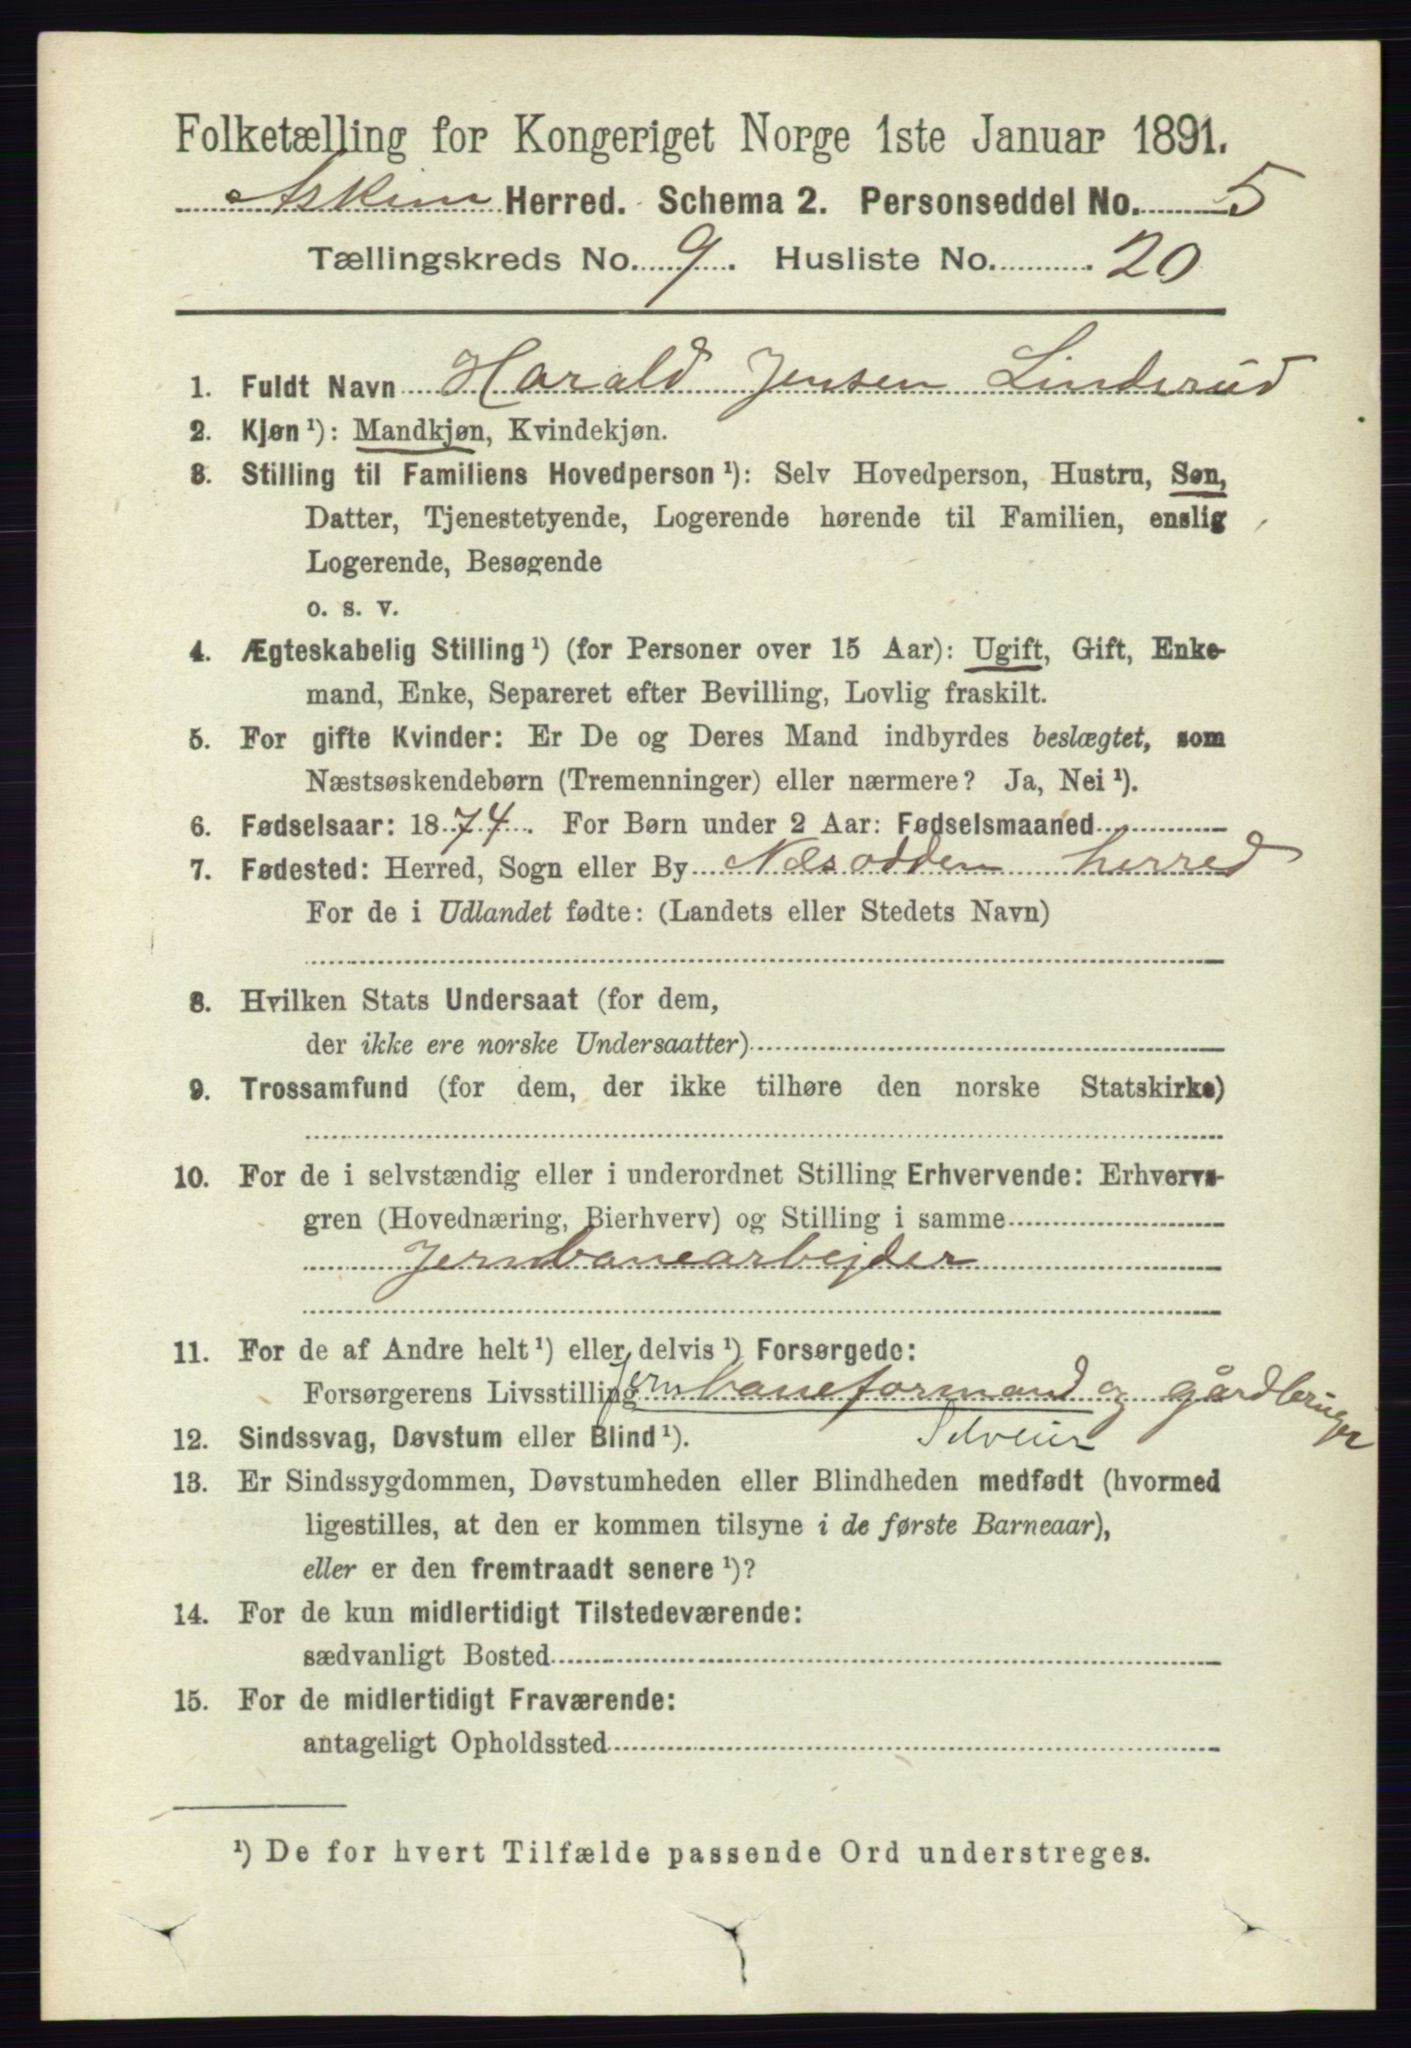 Folketælling for Kongeriget Norge 1ste Januar 1891.
Askim Herred. Schema 2. Personseddel No. 5
Tællingskreds No. 9. Husliste No. 20
1. Fuldt Navn Harald Jensen Linderud
2. Kjøn ¹): Mandkjøn, Kvindekjøn.
3. Stilling til Familiens Hovedperson ¹): Selv Hovedperson, Hustru, Søn,
Datter, Tjenestetyende, Logerende hørende til Familien, enslig
Logerende, Besøgende
o. s. v.
4. Ægteskabelig Stilling ¹) (for Personer over 15 Aar): Ugift, Gift, Enke-
mand, Enke, Separeret efter Bevilling, Lovlig fraskilt.
5. For gifte Kvinder: Er De og Deres Mand indbyrdes beslægtet, som
Næstsøskendebørn (Tremenninger) eller nærmere? Ja, Nei ¹).
6. Fødselsaar: 1874. For Børn under 2 Aar: Fødselsmaaned
7. Fødested: Herred, Sogn eller By Næsodden herred
For de i Udlandet fødte: (Landets eller Stedets Navn)
8. Hvilken Stats Undersaat (for dem,
der ikke ere norske Undersaatter)
9. Trossamfund (for dem, der ikke tilhøre den norske Statskirke)
10. For de i selvstændig eller i underordnet Stilling Erhvervende: Erhvervs-
gren (Hovednæring, Bierhverv) og Stilling i samme
Jernbanearbejder
11. For de af Andre helt ¹) eller delvis ¹) Forsørgede:
Forsørgerens Livsstilling Jernbaneformand og gårdbruger
12. Sindssvag, Døvstum eller Blind ¹). Selveier
13. Er Sindssygdommen, Døvstumheden eller Blindheden medfødt (hvormed
ligestilles, at den er kommen tilsyne i de første Barneaar),
eller er den fremtraadt senere ¹)?
14. For de kun midlertidigt Tilstedeværende:
sædvanligt Bosted
15. For de midlertidigt Fraværende:
antageligt Opholdssted
¹) De for hvert Tilfælde passende Ord understreges.